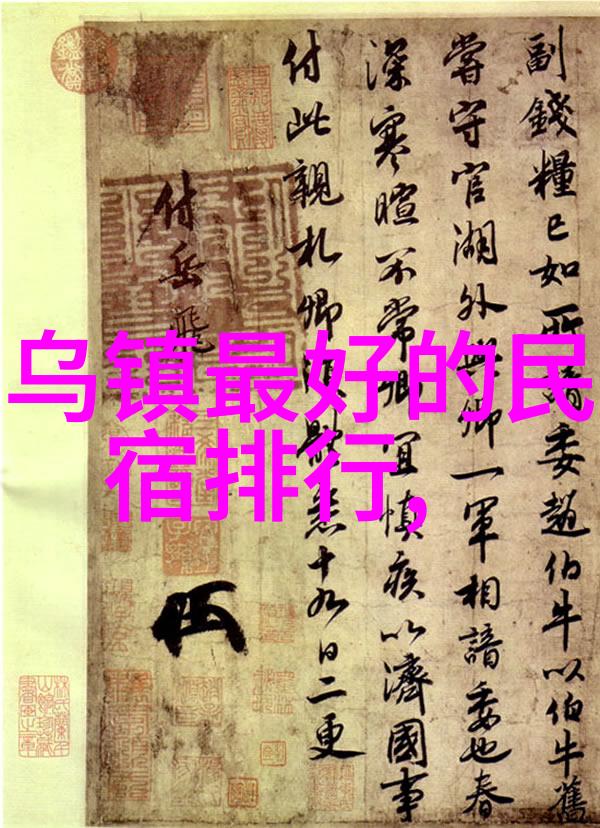 乌镇最好的民
宿排行，
副錢糧已如所請委趙伯牛以伯牛舊
嘗守官湖外與卿一軍相諳委也春
深寒暄不常卿宜慎疾以濟國事
付此親札卿須體悉十九日二更
付岳飛